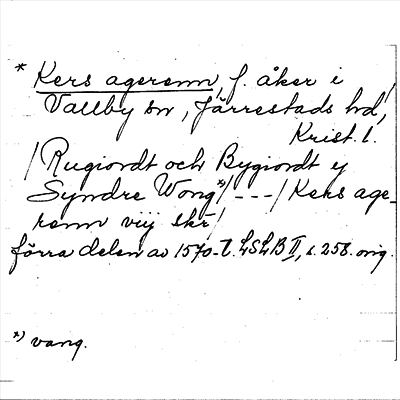 * Kers agerenn, f. åker i
Vallby sn, Järrestads hd,
Krist. l.
/Rugiordt och Bygiordt y
Syndre Wong*)/---/Kers age-
renn viij skr/
förra delen av 1570-t. LSLB II, s. 258. orig.
*) vang.